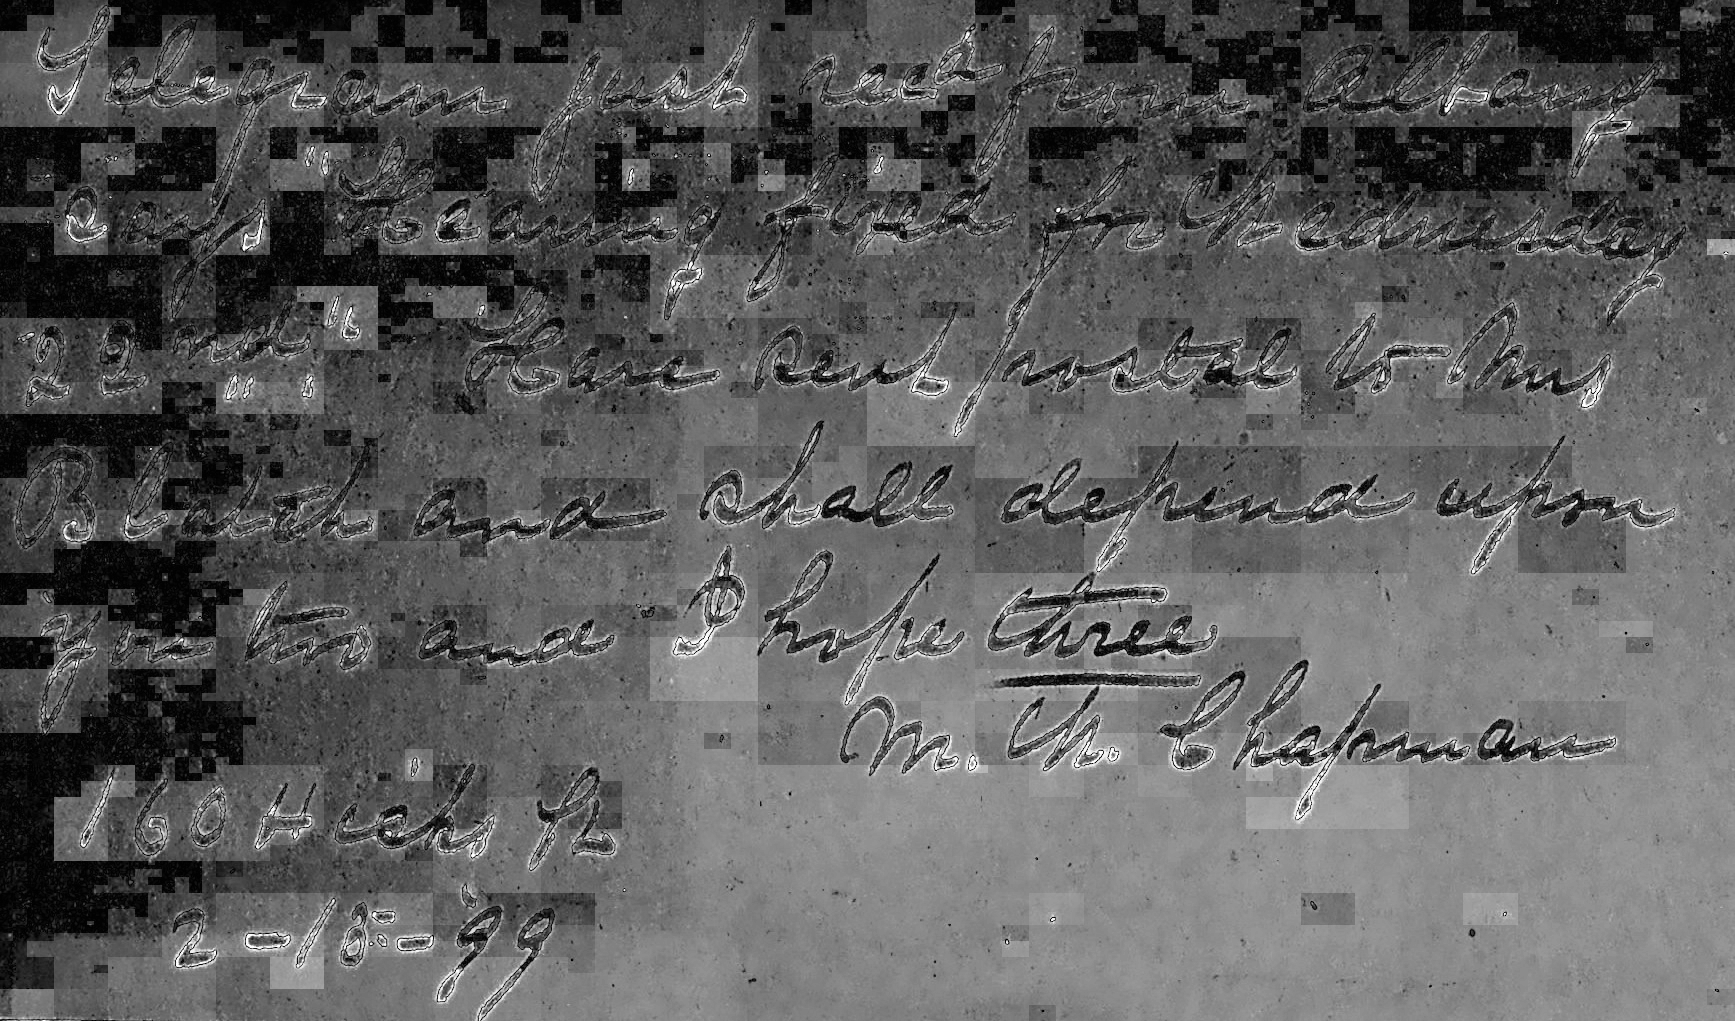 Telegram just recd from Albany
says "Hearing fixed for Wednesday
22nd" Have sent postal to Mrs
Blatch and shall depend upon
you two and I hope three
M. W. Chapman
160 Hicks St
2-15-'99